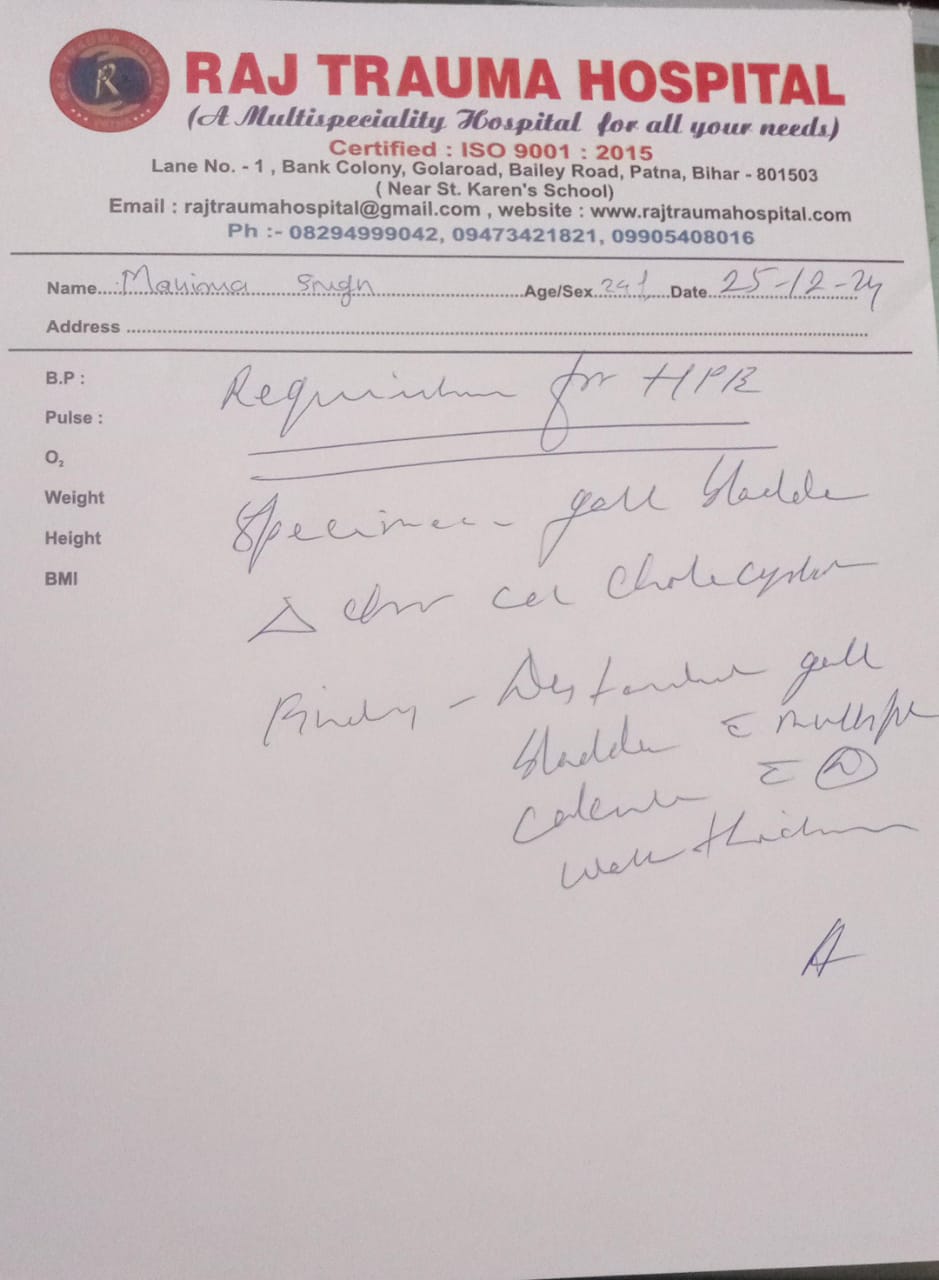 RAJ TRAUMA HOSPITAL
(A Multispeciality Hospital for all your needs)
Certified : ISO 9001 : 2015
Lane No. - 1 , Bank Colony, Golaroad, Bailey Road, Patna, Bihar - 801503
( Near St. Karen's School)
Email : rajtraumahospital@gmail.com , website : www.rajtraumahospital.com
Ph :- 08294999042, 09473421821, 09905408016
Name Singh Age/Sex Date 25-12-24
Address
B.P :
Requisition for HPE
Pulse :
O₂
Weight
Specimen - gall bladder
Height
BMI
Δ Chr Cal Cholecystitis
Finding - Distended gall
bladder c̅ multiple
calculi c̅
wall thickness